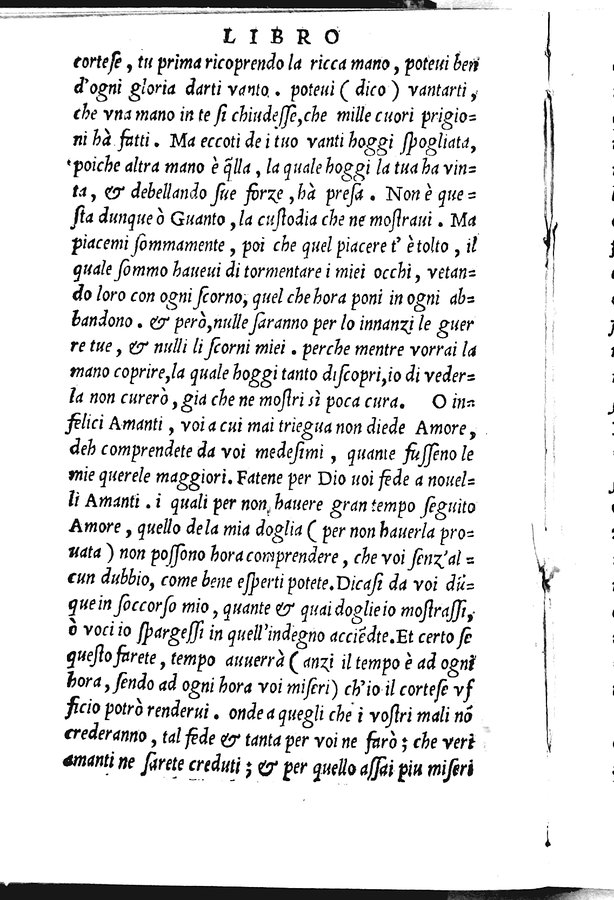 LIBRO
corteſe, tu prima ricoprendo la ricca mano, poteui ben
d'ogni gloria darti vanto. poteui (dico) vantarti,
che vna mano in te ſi chiudeſſe, che mille cuori prigio=
ni hà fatti. Ma eccoti de i tuo vanti hoggi ſpogliata,
poiche altra mano è q̃lla, la quale hoggi la tua ha vin=
ta, & debellando ſue forze, hà preſa. Non è que=
ſta dunque ò Guanto, la cuſtodia che ne moſtraui. Ma
piacemi ſommamente, poi che quel piacere t'è tolto, il
quale ſommo haueui di tormentare i miei occhi, vetan=
do loro con ogni ſcorno, quel che hora poni in ogni ab=
bandono. & però, nulle ſaranno per lo innanzi le guer
re tue, & nulli li ſcorni miei. perche mentre vorrai la
mano coprire, la quale hoggi tanto diſcopri, io di veder=
la non curerò, gia che ne moſtri sì poca cura. O in=
felici Amanti, voi a cui mai triegua non diede Amore,
deh comprendete da voi medeſimi, quante fuſſeno le
mie querele maggiori. Fatene per Dio uoi fede a nouel=
li Amanti. i quali per non hauere gran tempo ſeguito
Amore, quello de la mia doglia (per non hauerla pro=
uata) non poſſono hora comprendere, che voi ſenz'al=
cun dubbio, come bene eſperti potete. Dicaſi da voi dũ=
que in ſoccorſo mio, quante & quai doglie io moſtraſſi,
ò voci io ſpargeſſi in quell'indegno acciẽdte. Et certo ſe
queſto farete, tempo auuerrà (anzi il tempo è ad ogni
hora, ſendo ad ogni hora voi miſeri) ch'io il corteſe vf
ficio potrò renderui. onde a quegli che i voſtri mali nõ
crederanno, tal fede & tanta per voi ne farò; che veri
amanti ne ſarete creduti; & per quello aſſai piu miſeri